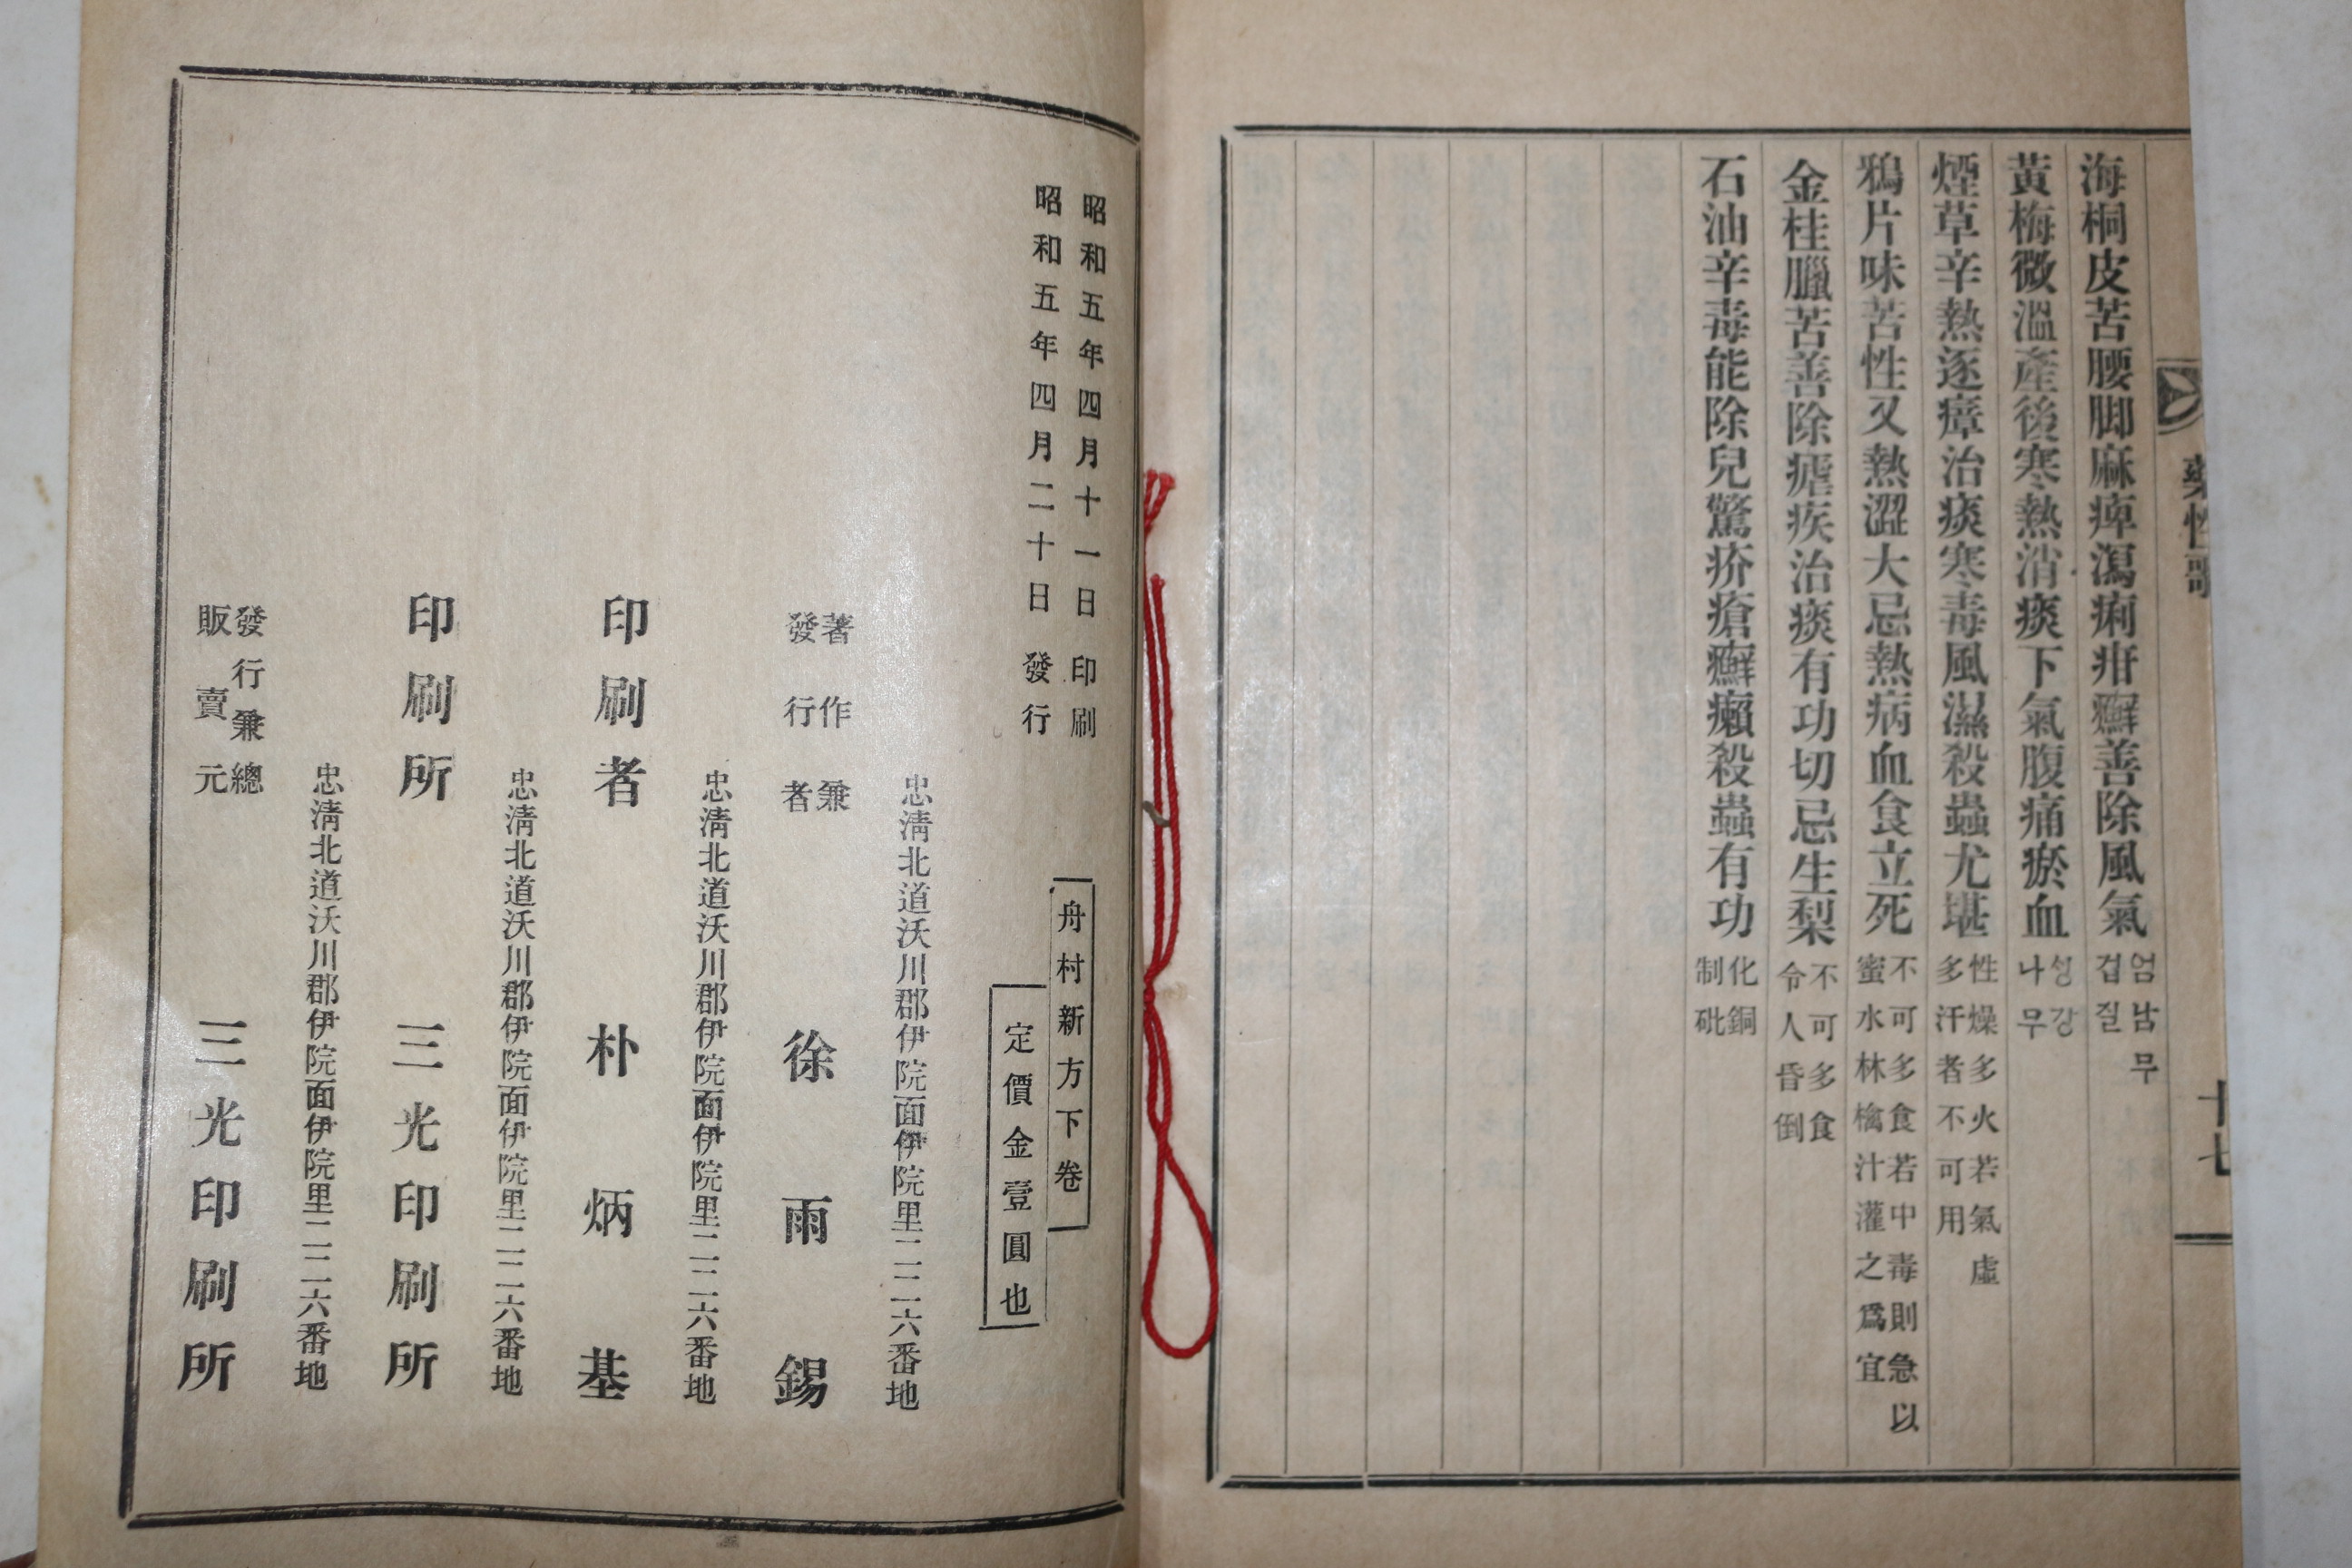 藥性歌
十七
海桐皮苦腰脚麻痺瀉痢疳癬善除風氣 엄남무겁질
黃梅微溫產後寒熱消痰下氣腹痛瘀血 성강나무
煙草辛熱逐瘴治痰寒毒風濕殺蟲尤堪 性燥多火若氣虛多汗者不可用
鴉片味苦性又熱澀大忌熱病血食立死 不可多食若中毒則急以蜜水林檎汁灌之爲宜
金桂臘苦善除瘧疾治痰有功切忌生梨 不可多食令人昏倒
石油辛毒能除兒驚疥瘡癬癩殺蟲有功 化銅制砒
昭和五年四月十一日 印刷
昭和五年四月二十日 發行
舟村新方下卷
定價金壹圓也
忠淸北道沃川郡伊院面伊院里二二六番地
著作兼發行者 徐雨錫
忠淸北道沃川郡伊院面伊院里二二六番地
印刷者 朴炳基
忠淸北道沃川郡伊院面伊院里二二六番地
印刷所 三光印刷所
忠淸北道沃川郡伊院面伊院里二二六番地
發行兼總販賣元 三光印刷所